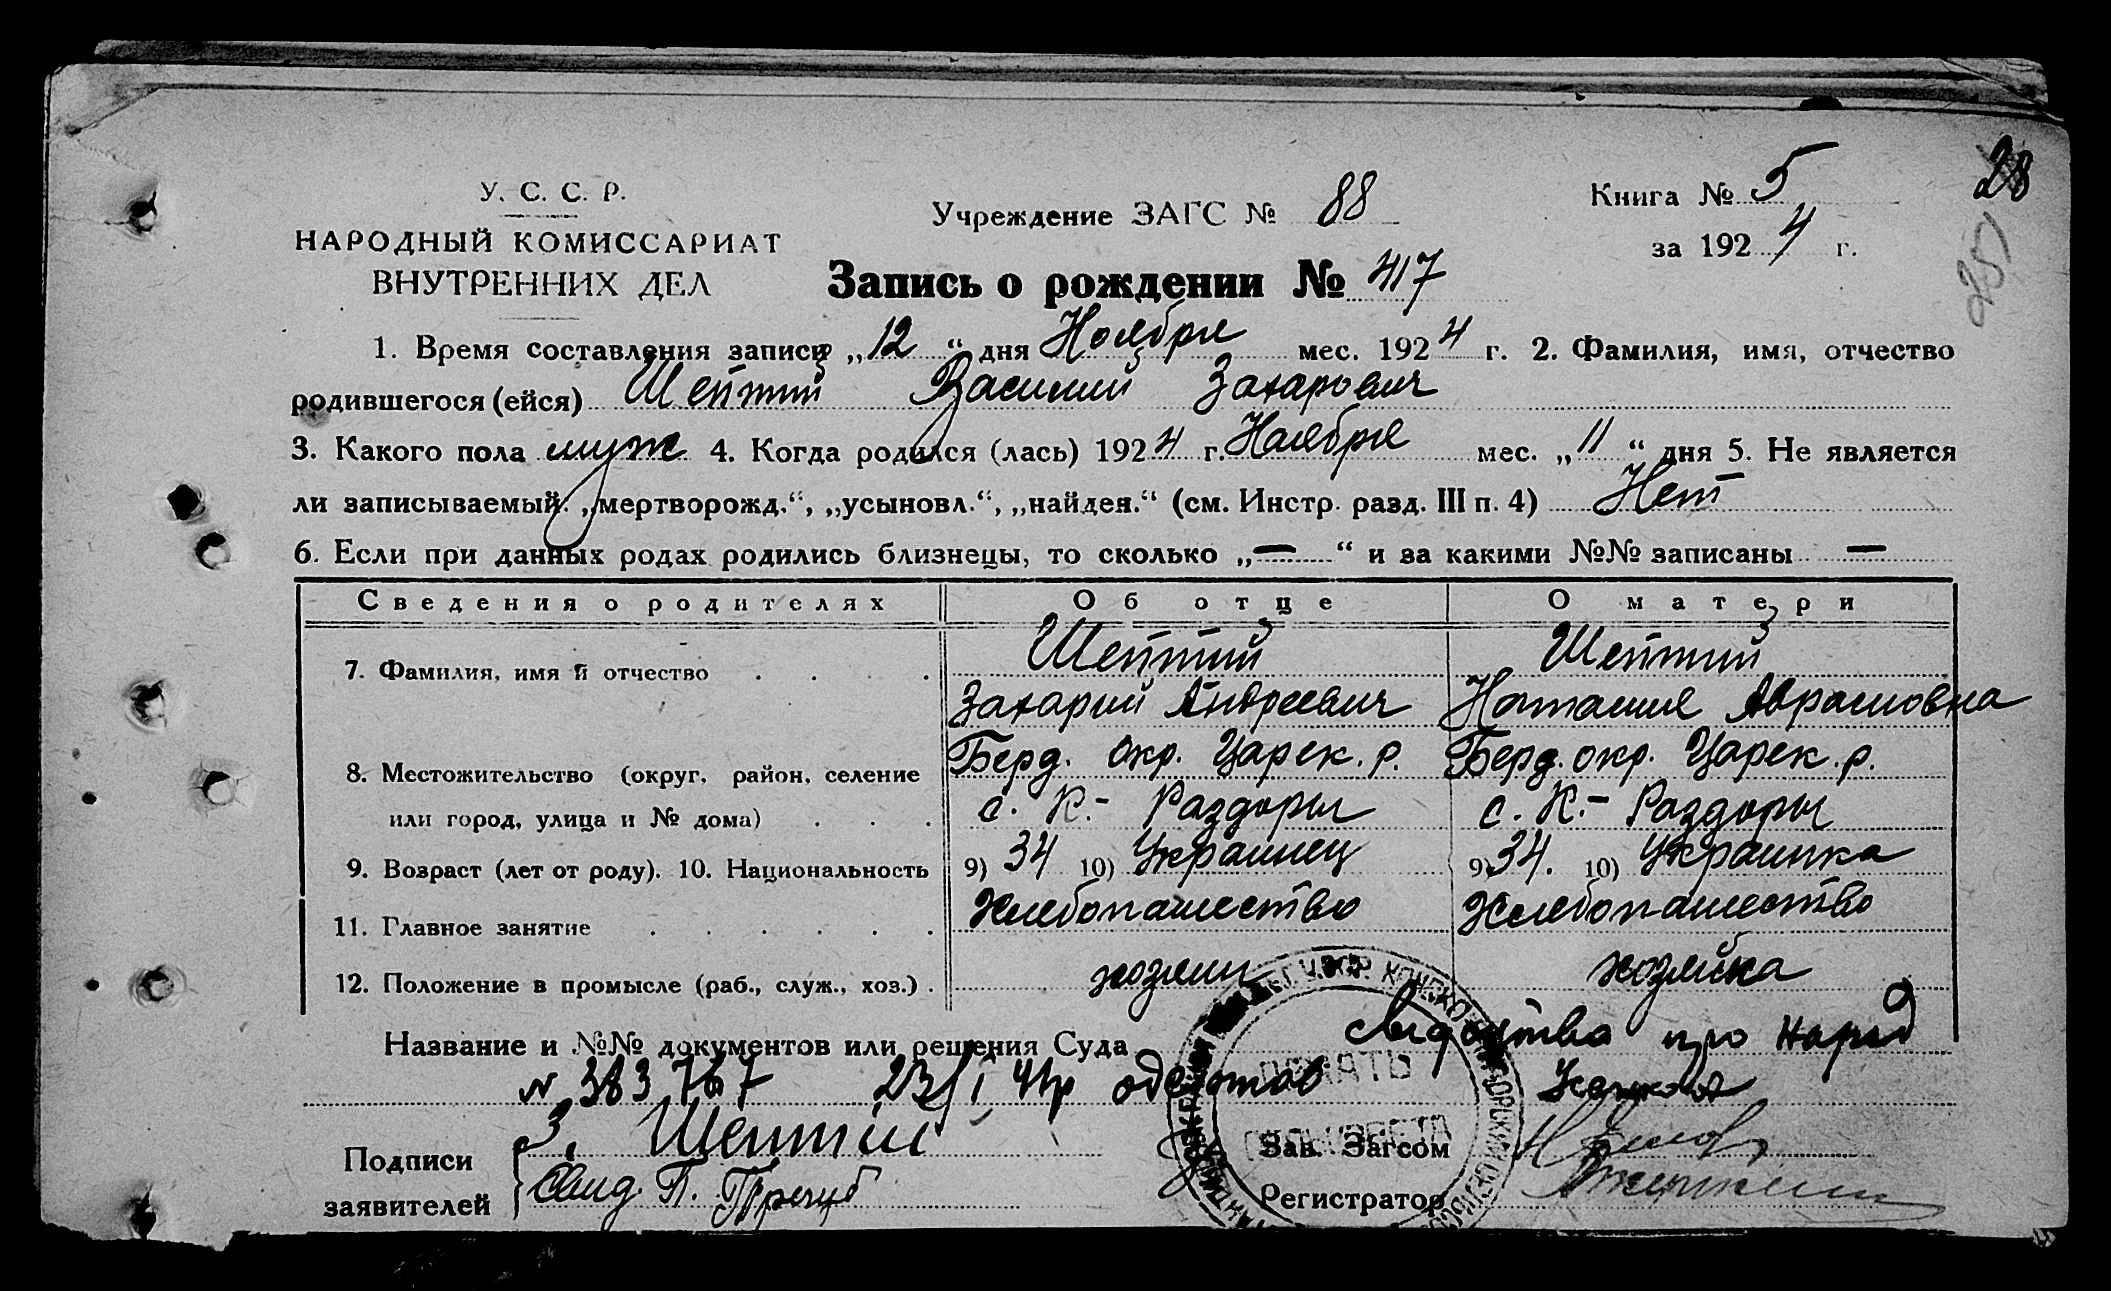 28
251
У. С. С. Р.
НАРОДНЫЙ КОМИССАРИАТ
ВНУТРЕННИХ ДЕЛ
Учреждение ЗАГС № 88
Книга № 5
за 1924 г.
Запись о рождении № 417
1. Время составления записи „12“ дня Ноября мес. 1924 г. 2. Фамилия, имя, отчество
родившегося (ейся) Шептий Василий Захарович
3. Какого пола муж 4. Когда родился (лась) 1924 г. Ноября мес. „11“ дня 5. Не является
ли записываемый „мертворожд.“, „усыновл.“, „найден.“ (см. Инстр. разд. III п. 4) Нет
6. Если при данных родах родились близнецы, то сколько „—“ и за какими №№ записаны —
Сведения о родителях Об отце О матери
7. Фамилия, имя и отчество Шептий Шептий
Захарий Андреевич Наталия Абрамовна
8. Местожительство (округ, район, селение Берд. окр. Царек. р. Берд. окр. Царек. р.
или город, улица и № дома) с. К.- Раздоры с. К.- Раздоры
9. Возраст (лет от роду). 10. Национальность 9) 34 10) Украинец 9) 34. 10) Украинка
11. Главное занятие Хлебопашество Хлебопашество
12. Положение в промысле (раб., служ., хоз.) хозяин хозяйка
Название и №№ документов или решения Суда про народ
№ 383767 23/I
Подписи З. Шептий Зав. Загсом
заявителей Свид. П. Регистратор
ПЕЧАТЬ